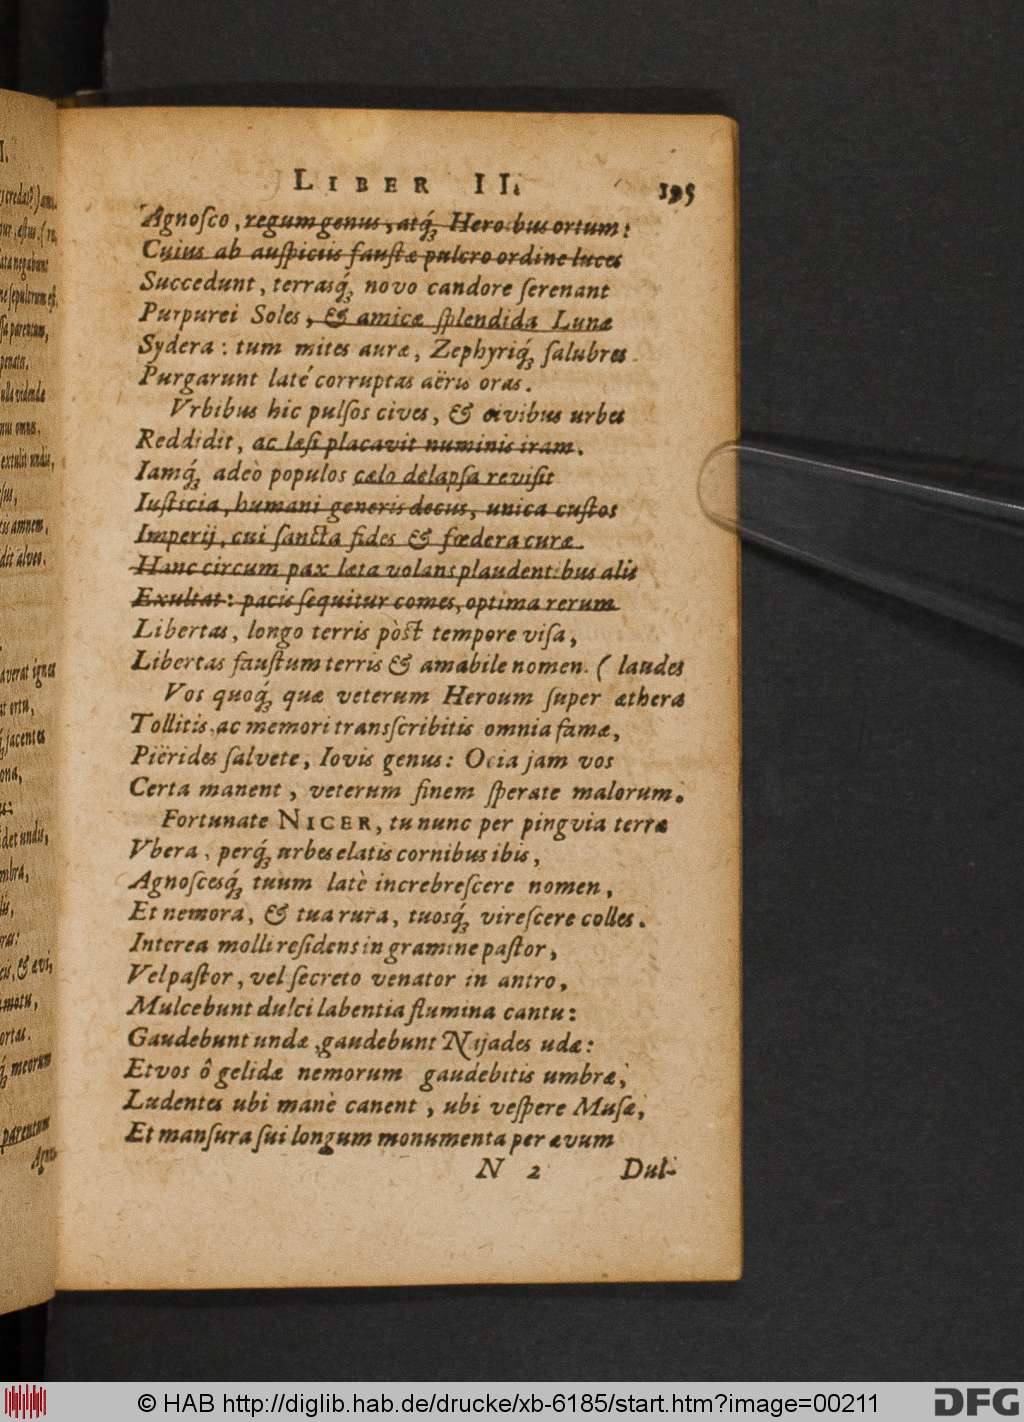 LIBER II.
195
Agnoſco, regum genus, atq́; Heroibus ortum:
Cuius ab auſpiciis fauſtæ pulcro ordine luces
Succedunt, terrasq́; novo candore ſerenant
Purpurei Soles, & amicæ ſplendida Lunæ
Sydera: tum mites auræ, Zephyriq́; ſalubres
Purgarunt laté corruptas aëris oras.
Vrbibus hic pulſos cives, & civibus urbes
Reddidit, ac læſi placavit numinis iram.
Iamq́; adeò populos cælo delapſa reviſit
Iuſticia, humani generis decus, unica cuſtos
Imperij, cui ſancta fides & fœdera curæ.
Hanc circum pax læta volans plaudentibus alis
Exultat: pacis ſequitur comes, optima rerum
Libertas, longo terris pòſt tempore viſa,
Libertas fauſtum terris & amabile nomen. (laudes
Vos quoq́; quæ veterum Heroum ſuper æthera
Tollitis, ac memori tranſcribitis omnia famæ,
Piërides ſalvete, Iovis genus: Ocia jam vos
Certa manent, veterum finem ſperate malorum.
Fortunate NICER, tu nunc per pingvia terræ
Vbera, perq́; urbes elatis cornibus ibis,
Agnoſcesq́; tuum latè increbreſcere nomen,
Et nemora, & tua rura, tuosq́; vireſcere colles.
Interea molli reſidens in gramine paſtor,
Vel paſtor, vel ſecreto venator in antro,
Mulcebunt dulci labentia flumina cantu:
Gaudebunt undæ, gaudebunt Najades udæ:
Et vos ô gelidæ nemorum gaudebitis umbræ,
Ludentes ubi manè canent, ubi veſpere Muſæ,
Et manſura ſui longum monumenta per ævum
N 2 Dul-
© HAB http://diglib.hab.de/drucke/xb-6185/start.htm?image=00211
DFG